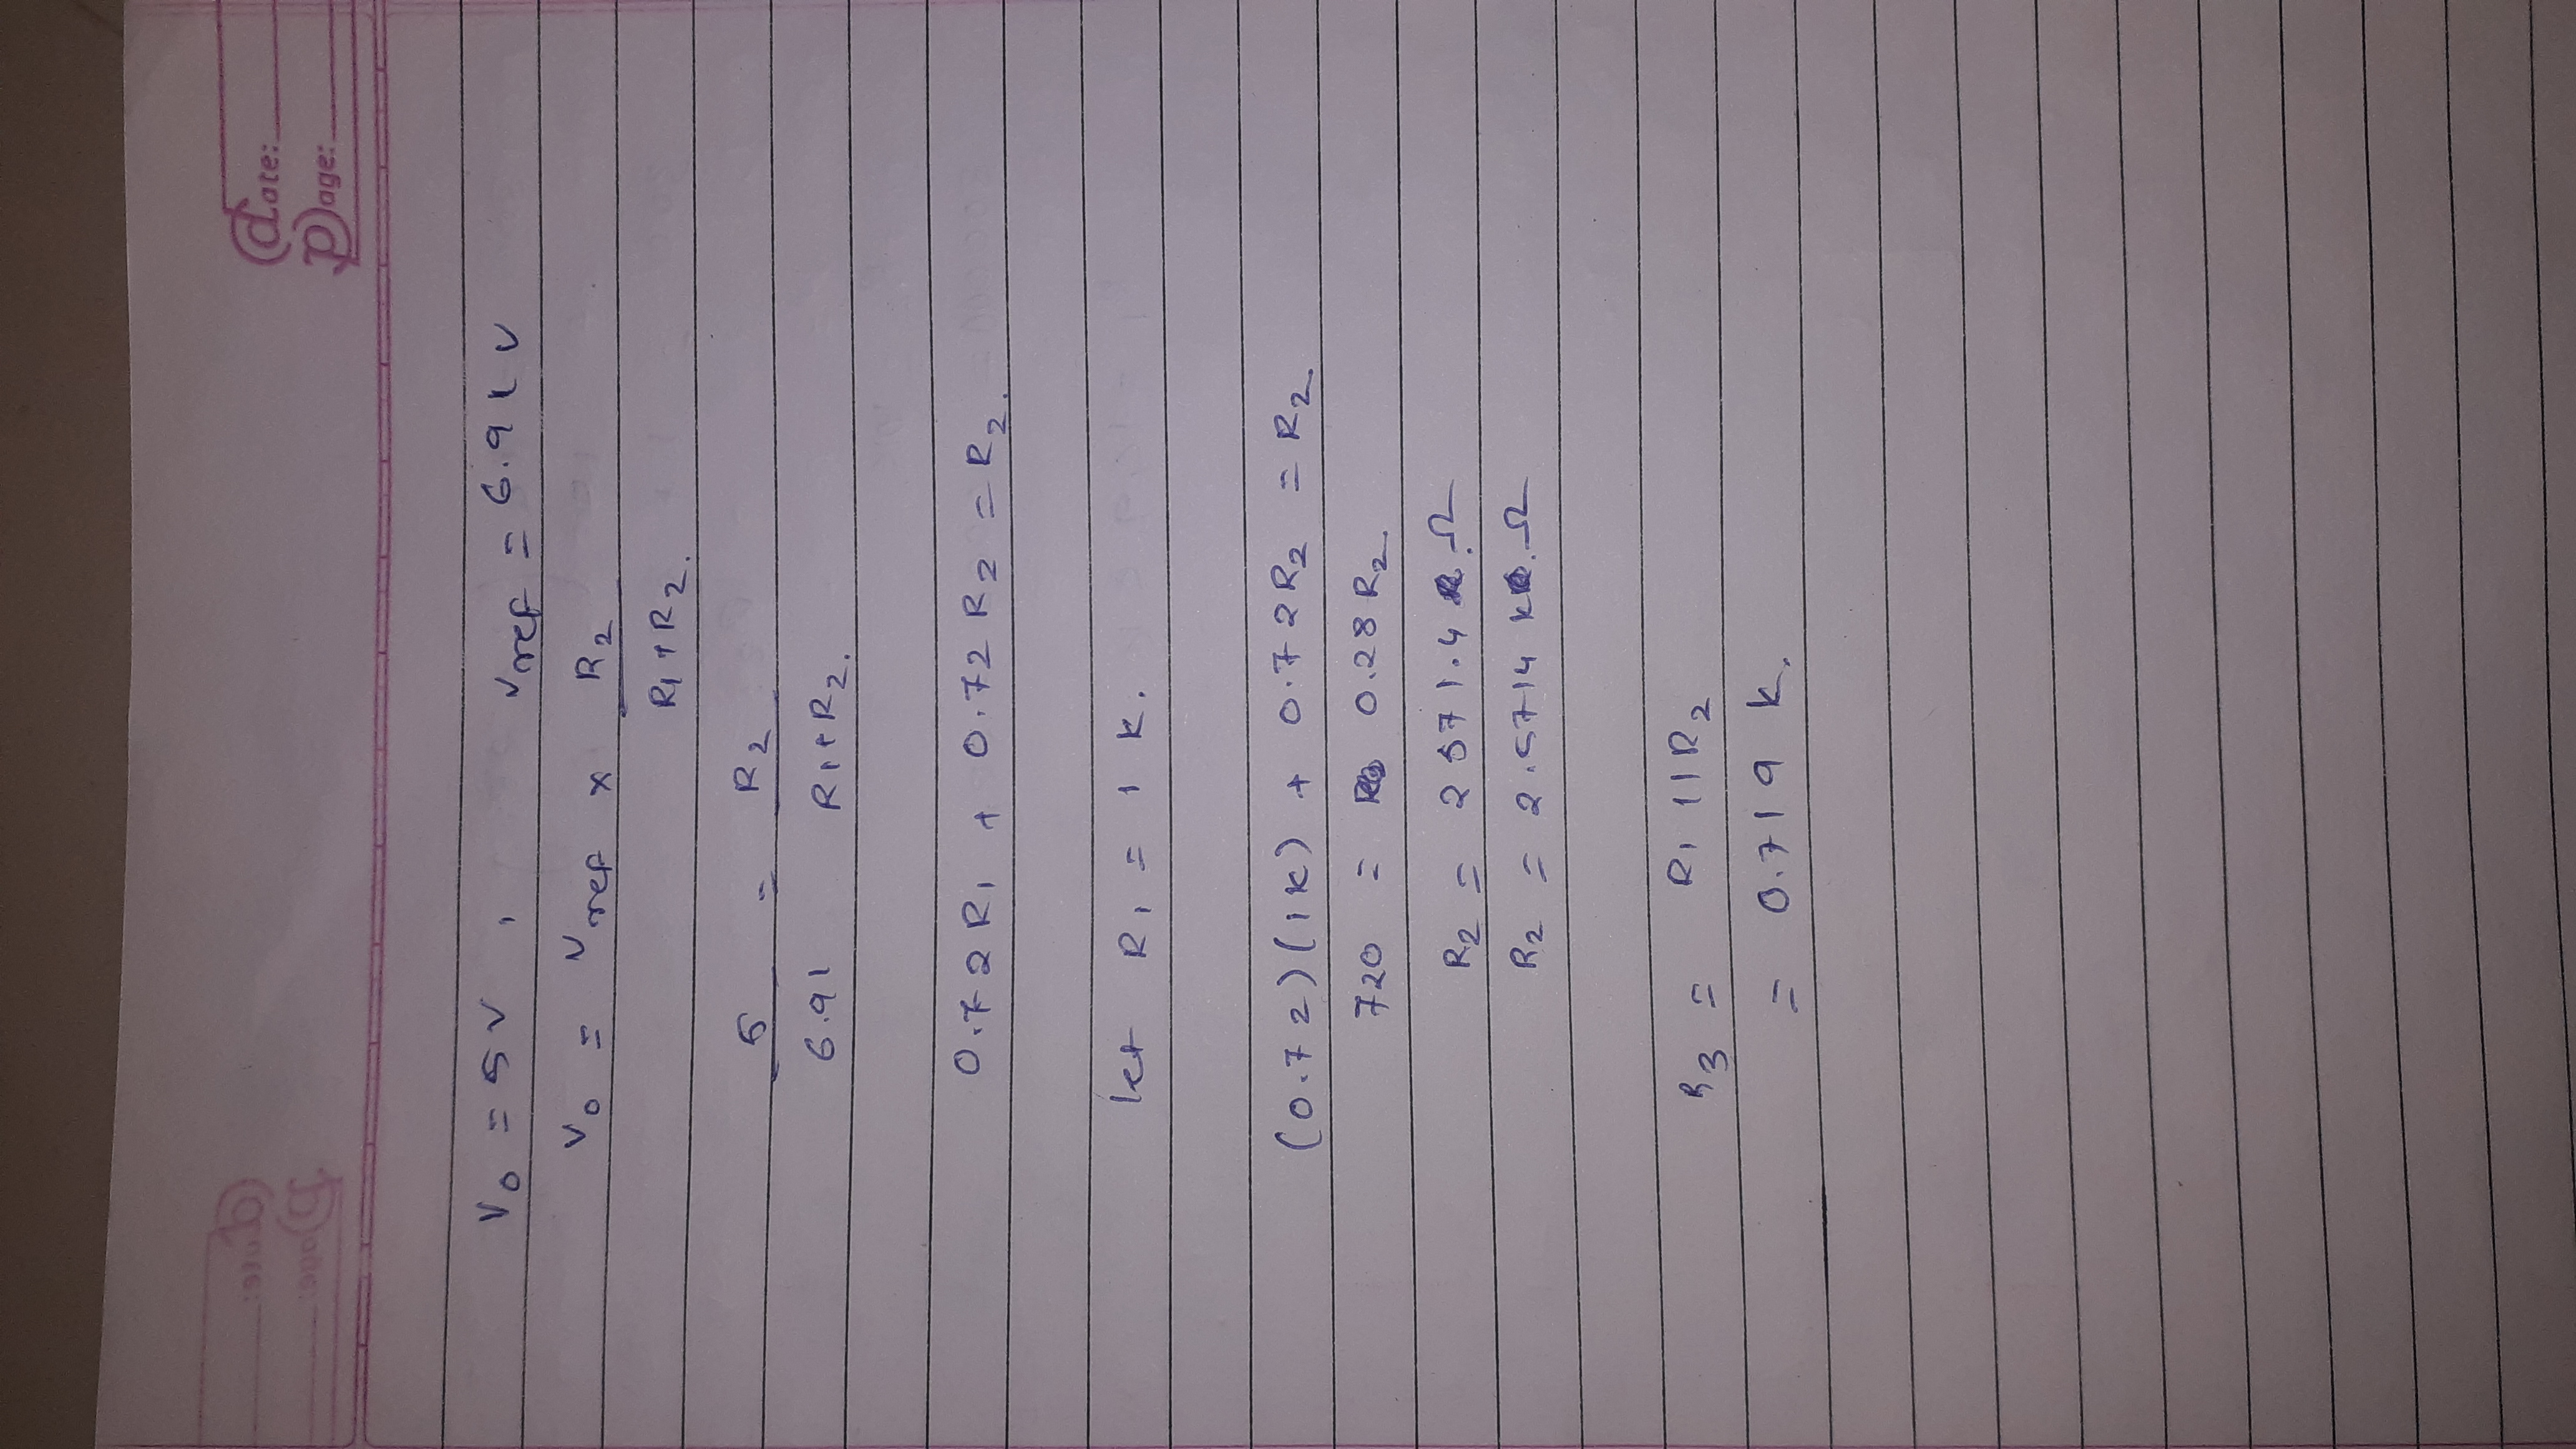 Date:
Page:
V₀ = 5V , Vref = 6.91 V
V₀ = Vref × R₂
R₁ + R₂.
5 = R₂
6.91 R₁ + R₂.
0.72 R₁ + 0.72 R₂ = R₂.
let R₁ = 1 k.
(0.72)(1k) + 0.72R₂ = R₂
720 = 0.28 R₂
R₂ = 2571.4 Ω
R₂ = 2.5714 k Ω
R₃ = R₁ || R₂
= 0.719 k.